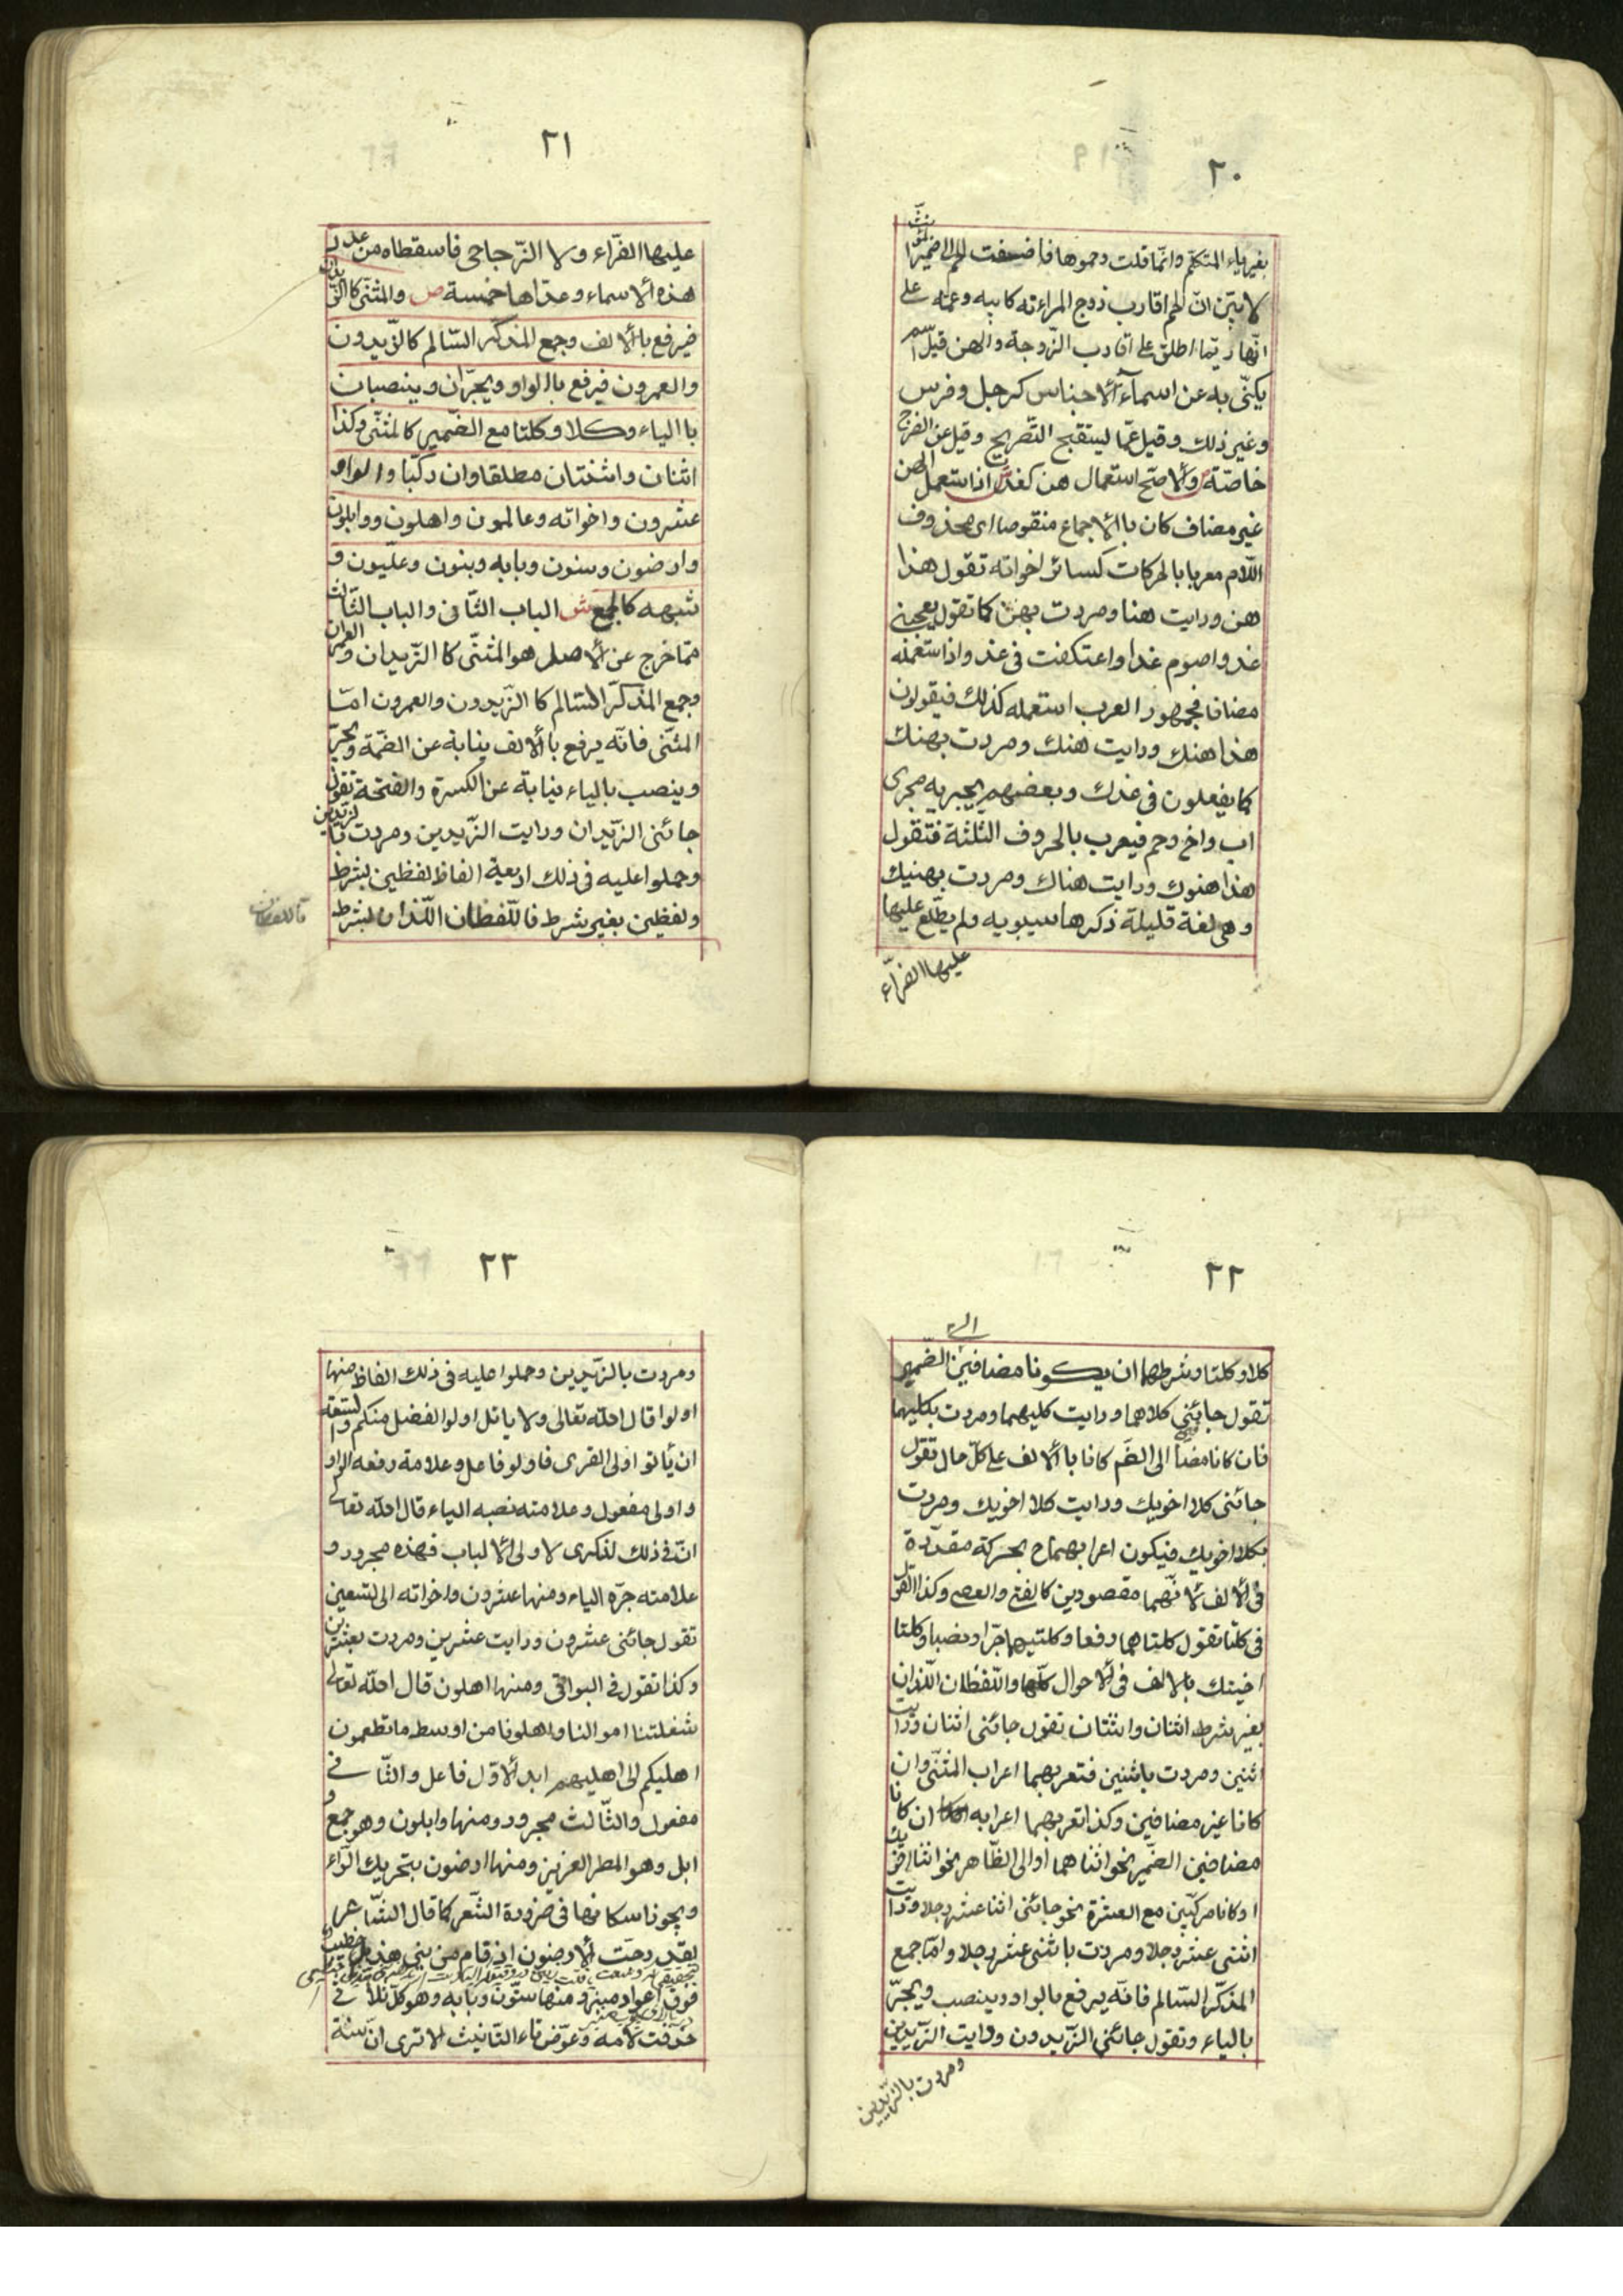 ٢٠
بغير ياء المتكلم وانما قلت وحموها فاضفت الحم الى ضمير المؤنث
لا بين ان الحم اقارب زوج المراءة كابيه وعمه على
انه ربما اطلق على اقارب الزوجة والهن قيل اسم
يكنّى به عن اسماء الاجناس كرجل وفرس
وغير ذلك وقيل عمّا يستقبح التصريح وقيل عن الفرج
خاصّة والاصح استعمال هن كغد اذا استعمل الهن
غير مضاف كان باالاجماع منقوصا اى محذوف
اللّام معربا بالحركات كسائر اخواته تقول هذا
هن ورايت هنا ومررت بهن كما تقول يعجبنى
غد واصوم غدا واعتكفت فى غد واذا استعمله
مضافا فجمهور العرب استعمله كذلك فيقولون
هذا هنك ورايت هنك ومررت بهنك
كما يفعلون فى غدك وبعضهم يجريه مجرى
اب واخ وحم فيعرب بالحروف الثلثة فتقول
هذا هنوك ورايت هناك ومررت بهنيك
وهى لغة قليلة ذكرها سيبويه ولم يطّلع عليها
عليها الفرّاء
٢١
عليها الفرّاء ولا الزّجاجى فاسقطاه من عدد
هذه الاسماء وعدّاها خمسة ص والمثنّى كالزّيدان
فيرفع باالالف وجمع المذكر السّالم كالزّيدون
والعمرون فيرفع باالواو ويجرّان وينصبان
باالياء وكلا وكلتا مع الضّمير كالمثنّى وكذا
اثنان واثنتان مطلقا وان ركّبا واولوا و
عشرون واخواته وعالمون واهلون ووابلون
وارضون وسنون وبابه وبنون وعليّون و
شبهه كالجمع ش الباب الثّانى والباب الثّالث
ممّا خرج عن الاصل هو المثنّى كاالزّيدان والعمران
وجمع المذكّر السّالم كاالزّيدون والعمرون امّا
المثنّى فانّه يرفع باالالف نيابة عن الضّمة ويجرّ
وينصب بالياء نيابة عن الكسرة والفتحة تقول
جائنى الزّيدان ورايت الزّيدين ومررت باالزّيدين
وحملوا عليه فى ذلك اربعة الفاظ لفظين بشرط
ولفظين بغير شرط فاللّفظان اللّذان بشرط
فاللفظان
٢٢
كلا وكلتا وشرطهما ان يكونا مضافين الى الضّمير
تقول جائنى كلاهما ورايت كليهما ومررت بكليهما
فان كانا مضافين الى الظّم كانا باالالف على كلّ حال تقول
جائنى كلا اخويك ورايت كلا اخويك ومررت
بكلا اخويك فيكون اعرابهما ح بحركة مقدّرة
فى الالف لانّهما مقصورين كالفتى والعصى وكذا القول
فى كلتا تقول كلتاهما رفعا وكلتيهما جرّا ونصبا وكلتا
اختيك بالالف فى الاحوال كلّها واللّفظان اللّذان
بغير شرط اثنان واثنتان تقول جائنى اثنان ورايت
اثنين ومررت باثنين فتعربهما اعراب المثنّى وان
كانا غير مضافين وكذا تعربهما اعرابه ان كانا
مضافين الضّمير نحو اثناهما او الى الظّاهر نحو اثنا اخويك
او كانا مركّبين مع العشرة نحو جائنى اثنا عشر رجلا ورايت
اثنى عشر رجلا ومررت باثنى عشر رجلا وامّا جمع
المذكّر السّالم فانّه يرفع بالواو وينصب ويجرّ
بالياء وتقول جائنى الزّيدون ورايت الزّيدين
ومررت بالزّيدين
٢٣
ومررت بالزّيدين وحملوا عليه فى ذلك الفاظ منها
اولوا قال الله تعالى ولا ياتل اولوا الفضل منكم والسّعة
ان يأتوا اولى القربى فاولو فاعل وعلامة رفعه الواو
واولى مفعول وعلامته نصبه الياء قال الله تعالى
انّ فى ذلك لذكرى لاولى الالباب فهذه مجرور و
علامته جرّه الياء ومنها عشرون واخواته الى التسعين
تقول جائنى عشرون ورايت عشرين ومررت بعشرين
وكذا تقول فى البواقى ومنها اهلون قال الله تعالى
شغلتنا اموالنا واهلونا من اوسط ما تطعمون
اهليكم الى اهليهم ابدا الاوّل فاعل والثّانى
مفعول والثّالث مجرور ومنها وابلون وهو جمع و
ابل وهو المطر العزيز ومنها ارضون بتحريك الرّاء
ويجوز اسكانها فى ضرورة الشّعر كما قال الشّاعر
لقد رجّت الارضون اذ قام من بنى هذيل خطيب
فوق اعواد منبر ومنها ستّون وبابه وهو كلّ ثلاثى
حذفت لامه وعوّض تاء التانيث الا ترى انّ سنة